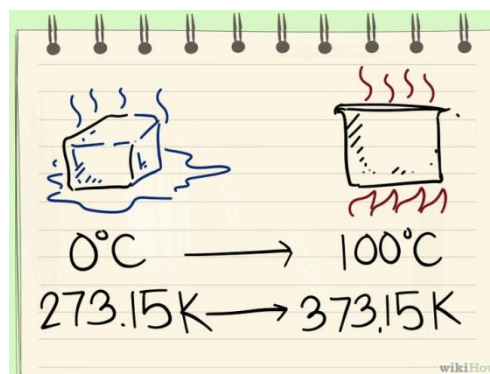 0°C → 100°C
273.15K → 373.15K
wikiHow